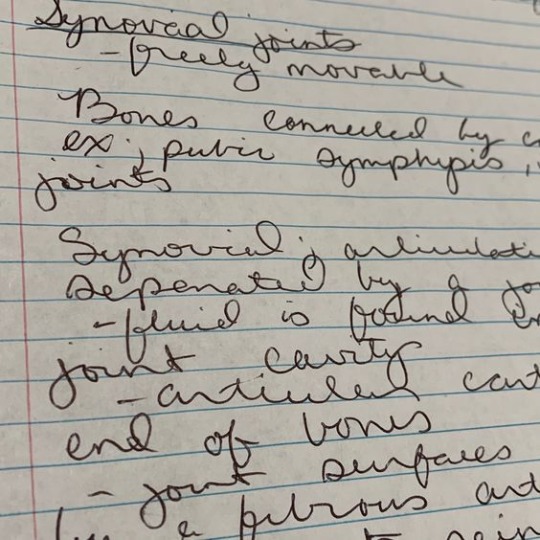 Synovial joints
- freely movable
Bones connected by
ex; pubic symphysis,
joints
Synovial;
seperated by a
- fluid is found
joint cavity
- articular
end of bones
- joint surfaces
a fibrous